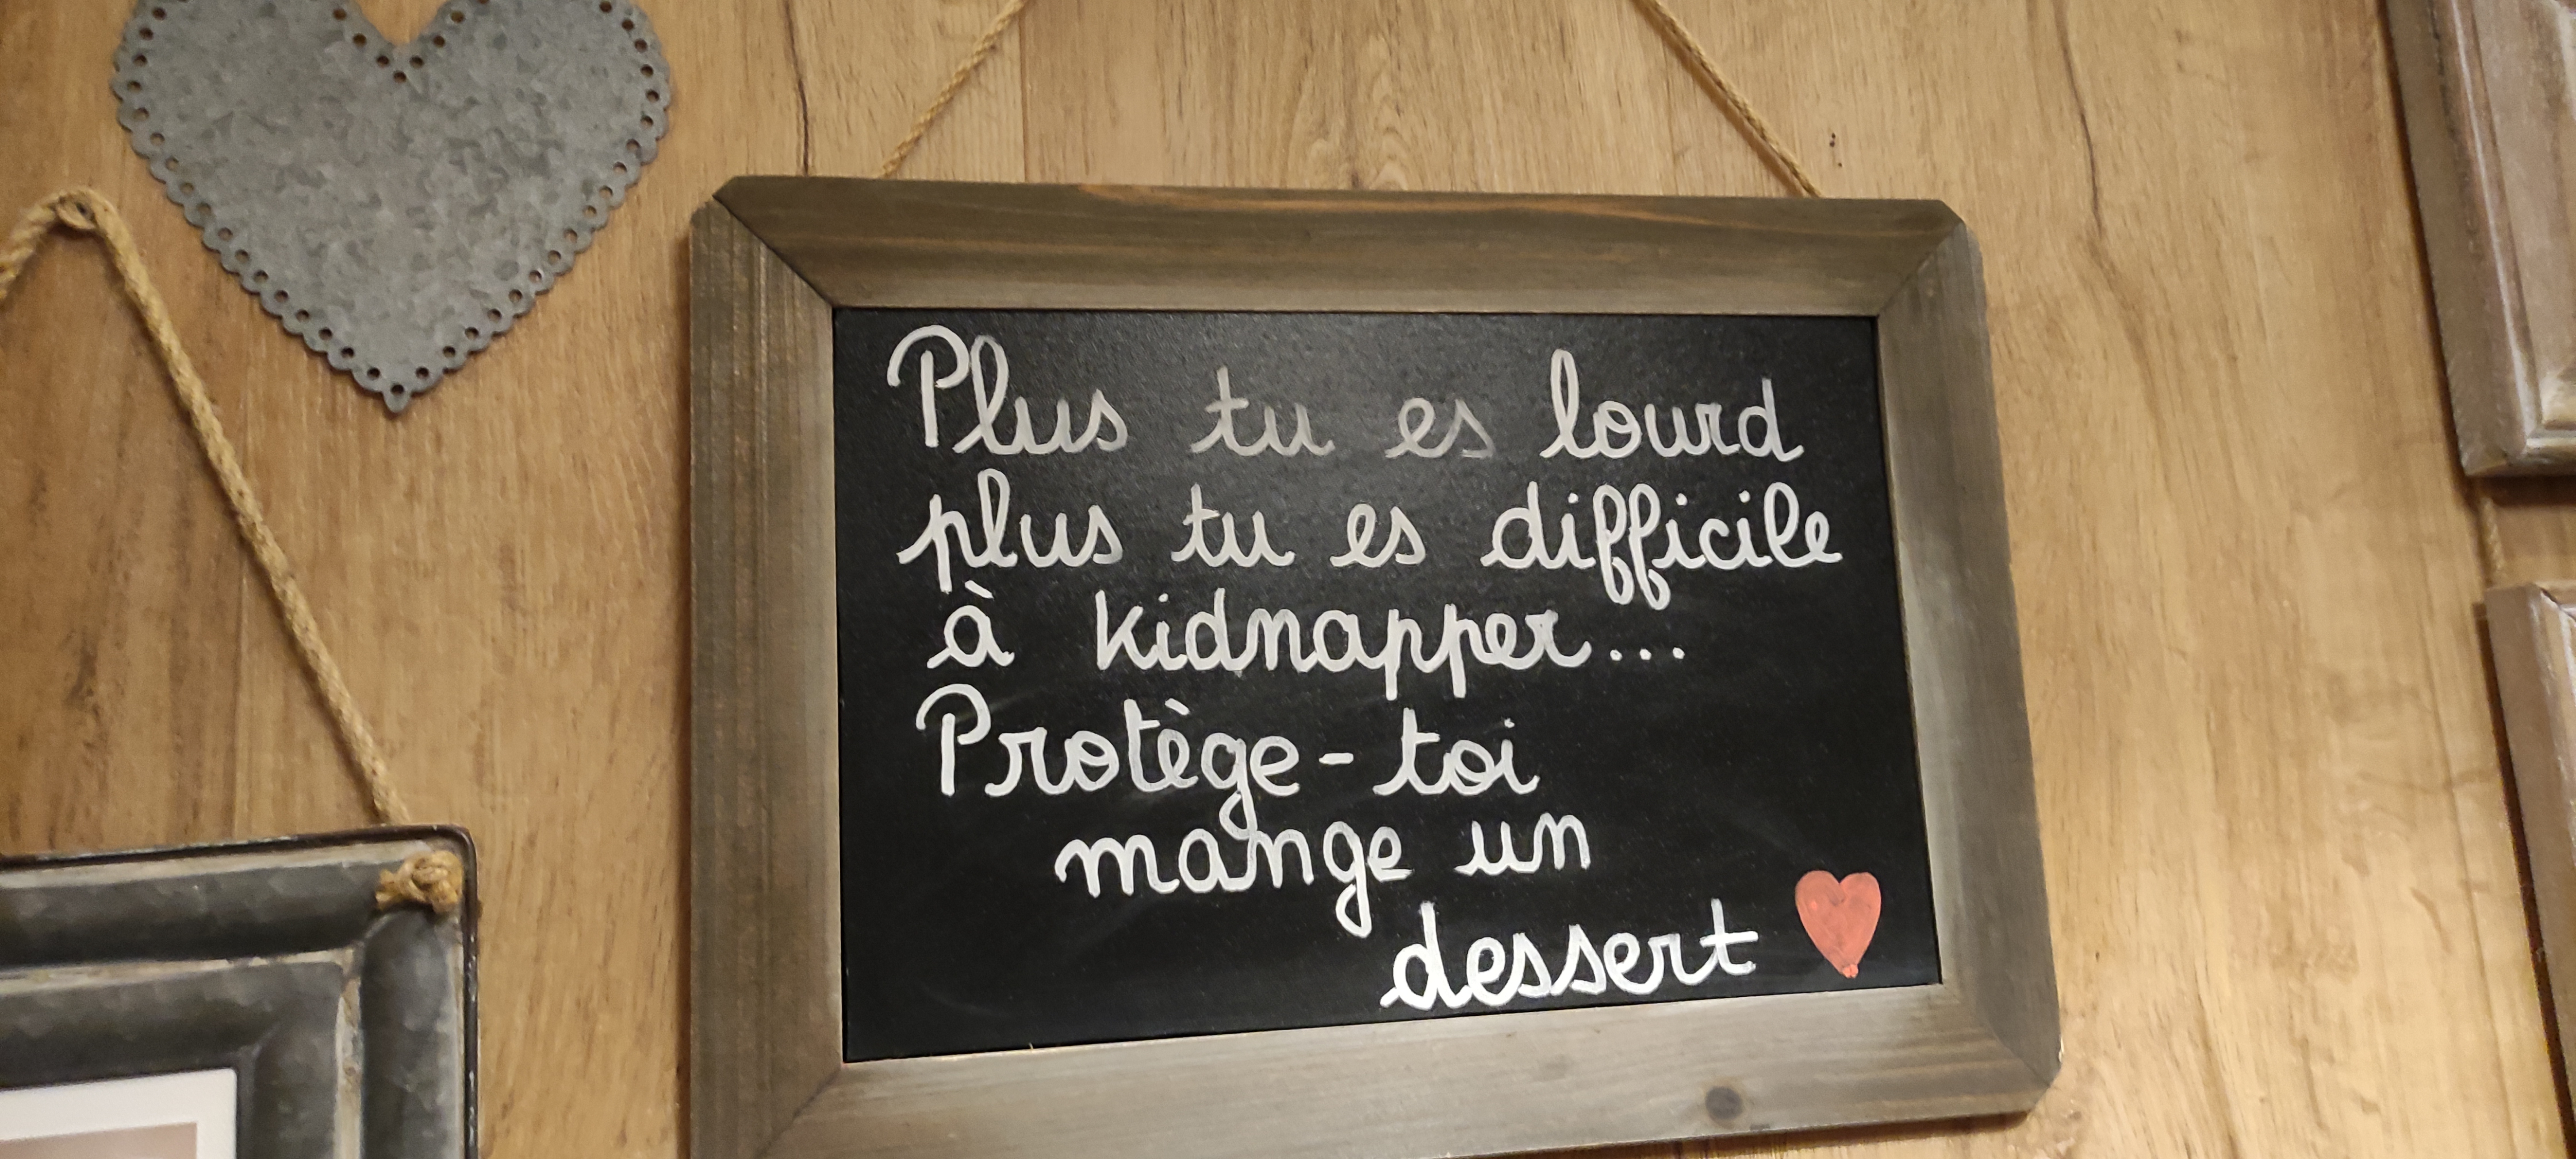 Plus tu es lourd
plus tu es difficile
à kidnapper...
Protège-toi
mange un
dessert